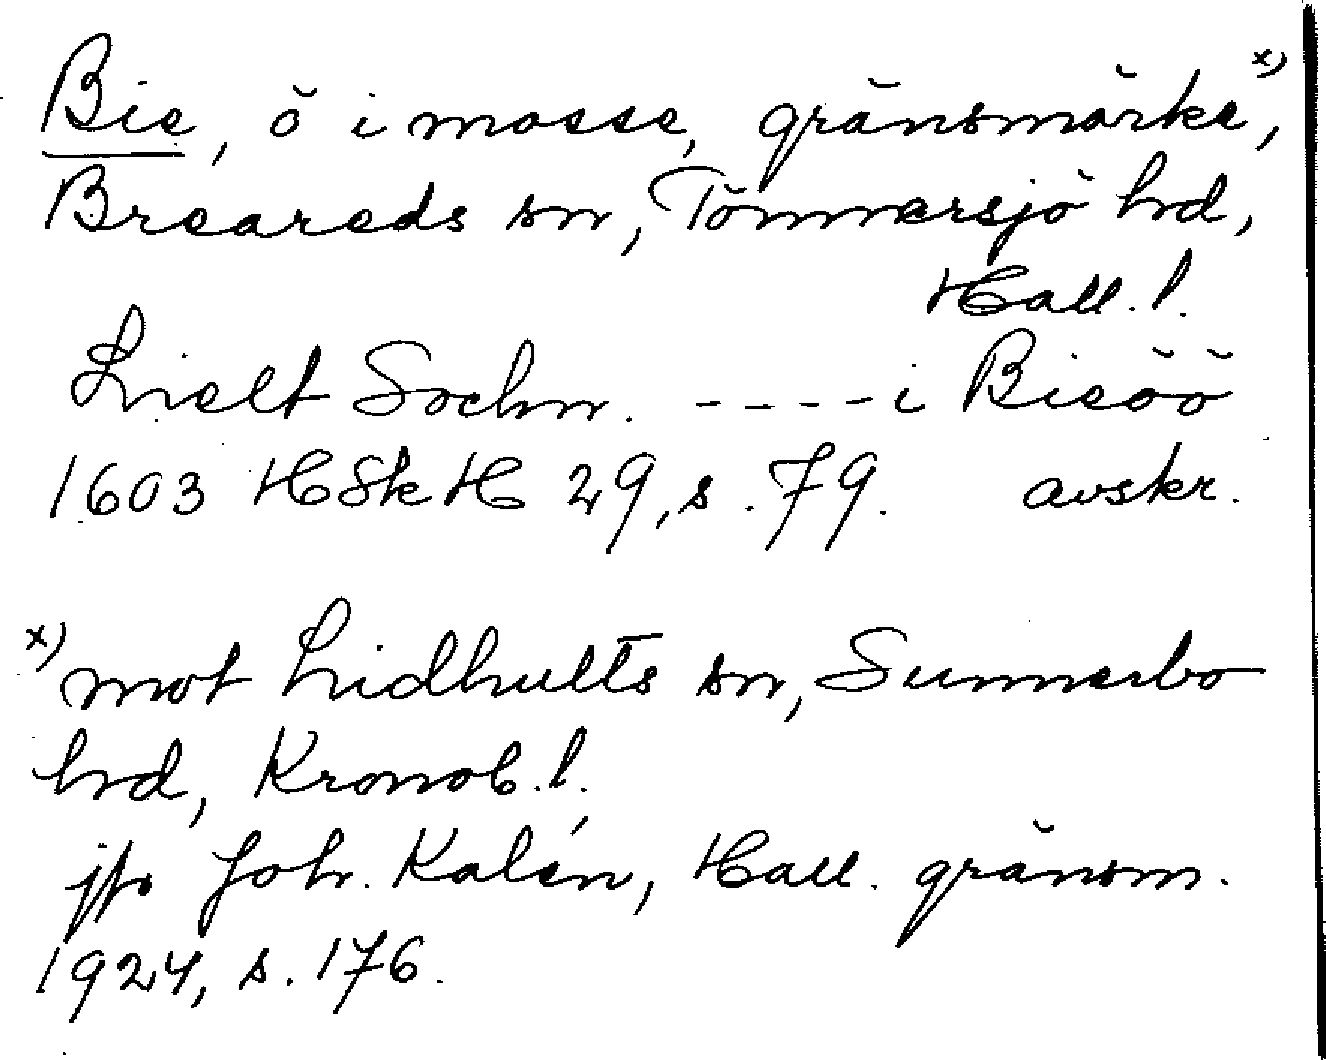 Bie, ö i mosse, gränsmärke x),
Breareds sn, Tönnersjö hrd,
Hall. l.
Lielt Sochn. ---- i Bieöö
1603 HSkH 29, s. 79. avskr.
x) mot Lidhults sn, Sunnerbo
hrd, Kronob. l.
jfr Joh. Kalén, Hall. gränsm.
1924, s. 176.